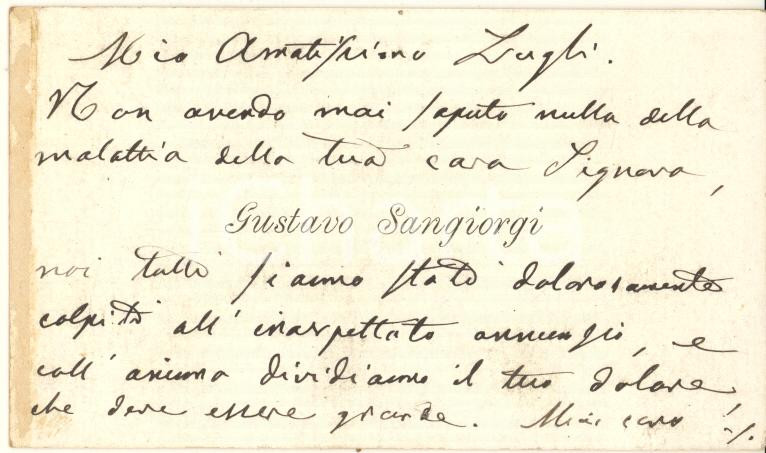 Mio Amatissimo Lugli.
Non avendo mai saputo nulla della
malattia della tua cara Signora,
Gustavo Sangiorgi
noi tutti siamo stati dolorosamente
colpiti all' inaspettato annunzio, e
coll' animo dividiamo il tuo dolore,
che deve essere grande. Mio caro
./.